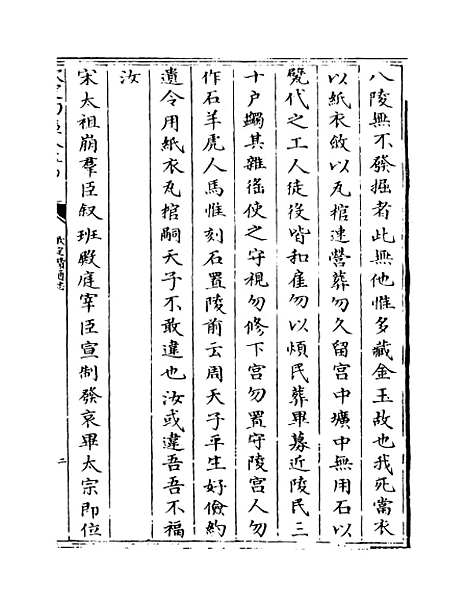 八陵無不發掘者此無他惟多藏金玉故也我死當衣
以紙衣斂以瓦棺速營葬勿久留宮中壙中無用石以
甓代之工人徒役皆和雇勿以煩民葬畢募近陵民三
十户蠲其雜徭使之守視勿修下宮勿置守陵宮人勿
作石羊虎人馬惟刻石置陵前云周天子平生好儉約
遺令用紙衣瓦棺嗣天子不敢違也汝或違吾吾不福
汝
宋太祖崩羣臣叙班殿庭宰臣宣制發哀畢太宗即位
二